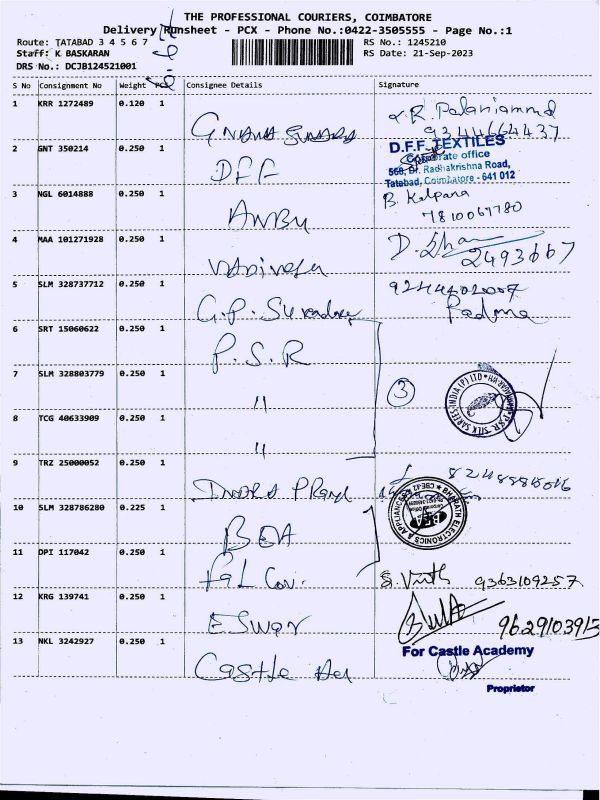 THE PROFESSIONAL COURIERS, COIMBATORE
Delivery Runsheet - PCX - Phone No.:0422-3505555 - Page No.:1
Route: TATABAD 3 4 5 6 7
RS No.: 1245210
Staff: K BASKARAN
RS Date: 21-Sep-2023
DRS No.: DCJB124521001
S No Consignment No Weight Consignee Details Signature
1 KRR 1272489 0.120 1
R. Palaniammal
9344664437
2 GNT 350214 0.250 1 DFF
D.F.F. TEXTILES
Corporate office
568, Dr. Radhakrishna Road,
Tatabad, Coimbatore - 641 012
3 NGL 6014888 0.250 1 ANBU
B. Kalpana
7810067780
4 MAA 101271928 0.250 1
D.
2493667
5 SLM 328737712 0.250 1 G.P.
Padma
6 SRT 15060622 0.250 1 P.S.R
7 SLM 328803779 0.250 1 "
3
P.S.R. SILK SAREES INDIA (P) LTD
8 TCG 40633909 0.250 1 "
9 TRZ 25000052 0.250 1
10 SLM 328786280 0.225 1 BEA
BHARATH ELECTRONICS & APPLIANCES
BEA
11 DPI 117042 0.250 1
9363109257
12 KRG 139741 0.250 1 ESwar
9629103913
13 NKL 3242927 0.250 1 Castle
For Castle Academy
Proprietor